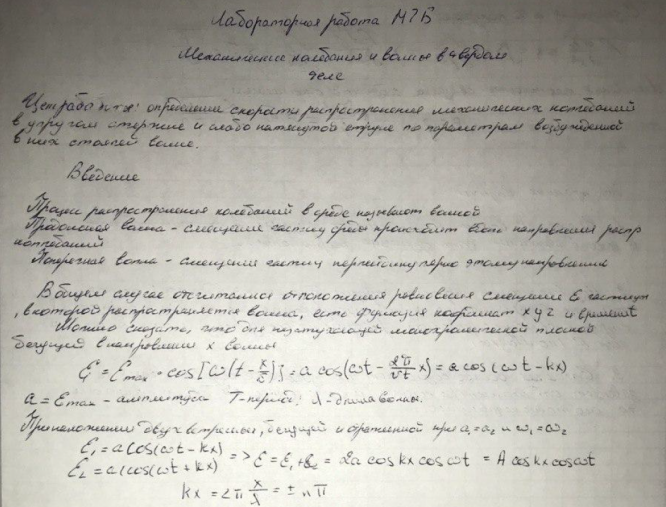 Лабораторная работа М7Б
Механические колебания и волны в твердом
теле
Цель работы: определение скорости распространения механических колебаний
в упругом стержне и слабо натянутой струне по параметрам возбужденной
в них стоячей волне.
Введение
Процесс распространения колебаний в среде называют волной
Продольная волна - смещение частиц среды происходит вдоль направления распр
колебаний
Поперечная волна - смещение частиц перпендикулярно этому направлению
В общем случае отсчитанное от положения равновесия смещение ξ частиц
, в которой распространяется волна, есть функция координат x y z и времени t
Можно сказать, что для монохроматической плоской
бегущей в направлении x волны
ξ = ξmax · cos[ω(t - x/v)] = a cos(ωt - 2π/vt x) = a cos(ωt - kx)
a = ξmax - амплитуда T - период. λ - длина волны.
При наложении двух встречных, бегущей и отраженной при a₁=a₂ и ω₁=ω₂
ξ₁ = a cos(ωt - kx)
ξ₂ = a cos(ωt + kx) => ξ = ξ₁+ξ₂ = 2a cos kx cos ωt = A cos kx cos ωt
kx = 2π x/λ = ± nπ